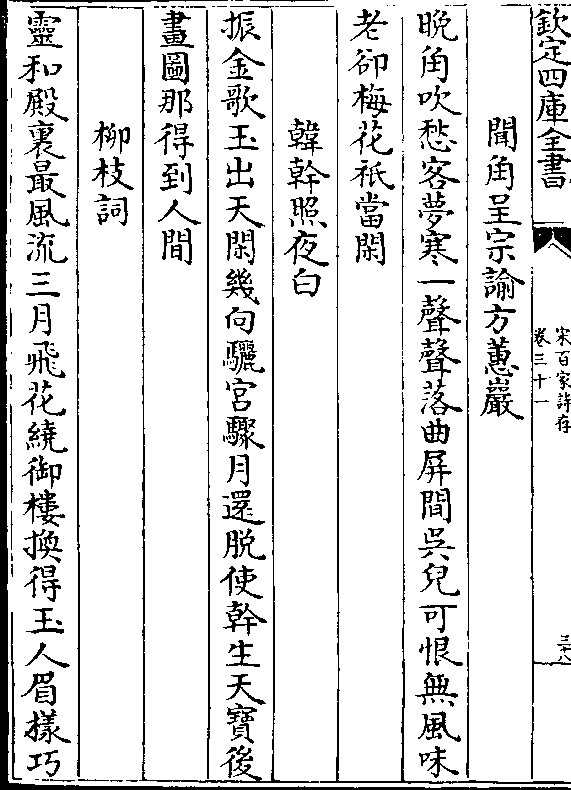 欽定四庫全書
宋百家詩存
卷三十一
三十八
聞角呈宗諭方蕙巖
晚角吹愁客夢寒一聲聲落曲屏間吳兒可恨無風味
老卻梅花祇當閑
韓幹照夜白
振金歌玉出天閑幾向驪宮驟月還脫使幹生天寶後
畫圖那得到人間
柳枝詞
靈和殿裏最風流三月飛花繞御樓換得玉人眉樣巧